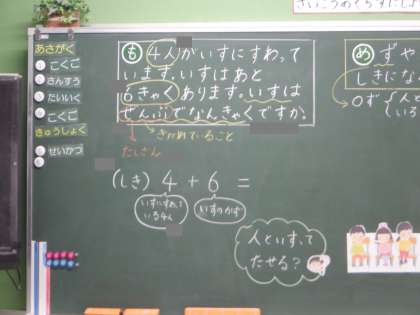 さいこうのくうきにし
あさがく
こくご
さんすう
たいいく
こくご
きゅうしょく
せいかつ
も 4人がいすにすわって
います。いすはあと
6きゃくあります。いすは
ぜんぶでなんきゃくですか。
きかれていること
たしざん
(しき) 4 + 6 =
いすにすわって
いる4人
いすのかず
人といすって
たせる?
め ずや
しきにな
0ず
人
(いる